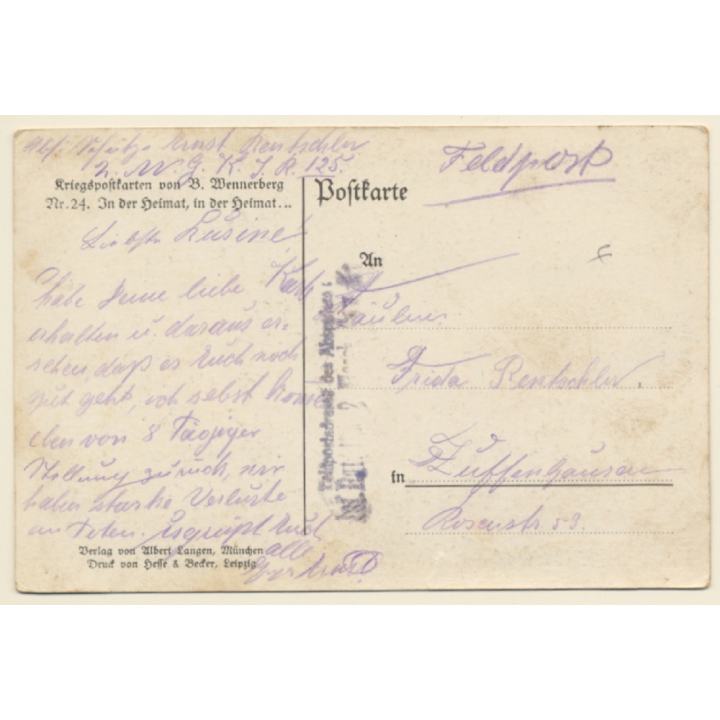 Abs. Schütze Ernst Rentschler
2. M. G. K. J. R. 125.
Kriegspostkarten von B. Wennerberg
Nr. 24. In der Heimat, in der Heimat...
Liebste Cusine
habe Deine liebe Karte
erhalten u. daraus er-
sehen, daß es Euch noch
gut geht, ich selbst komme
eben von 8 Tägiger
Stellung zurück, wir
haben starke Verluste
an Toten. Es grüßt Euch
alle
Verlag von Albert Langen, München
Druck von Hesse & Becker, Leipzig
Feldpost
Postkarte
An
Fräulein
Frida Rentschler
in Zuffenhausen
Rosenstr 59.